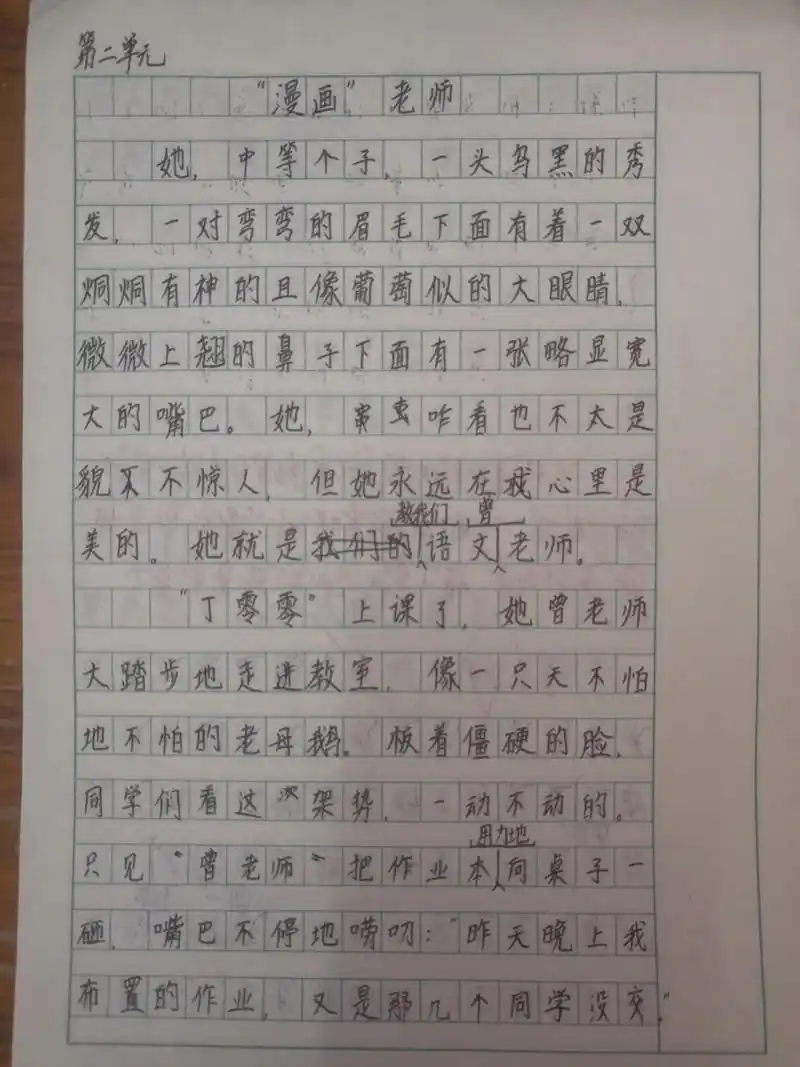 第二单元
"漫画"老师
她，中等个子，一头乌黑的秀
发，一对弯弯的眉毛下面有着一双
炯炯有神的且像葡萄似的大眼睛，
微微上翘的鼻子下面有一张略显宽
大的嘴巴。她，虽咋看也不太是
貌不惊人，但她永远在我心里是
美的。她就是教我们语文曾老师。
"丁零零"上课了，她曾老师
大踏步地走进教室，像一只天不怕
地不怕的老母鹅。板着僵硬的脸，
同学们看这次架势，一动不动的。
只见"曾老师"把作业本用力地向桌子一
砸，嘴巴不停地唠叨："昨天晚上我
布置的作业，又是那几个同学没交。"